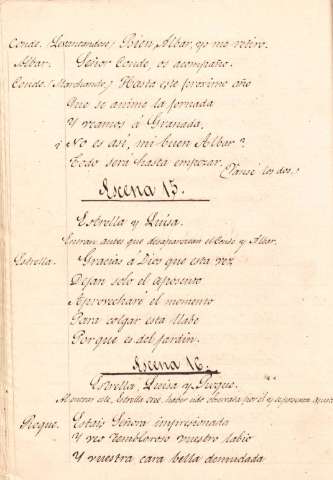 Conde. (Levantandose) Bien Albar, yo me retiro.
Albar. Señor Conde, os acompaño.
Conde. (Marchando,) Hasta este proximo año
Que se anime la jornada
Y veamos á Granada,
¿ No es así, mi buen Albar?
Todo será hasta empezar.
(Vanse los dos.)
Escena 15.
Estrella y Luisa.
Entran, antes que desaparezcan el Conde y Albar.
Estrella. Gracias á Dios que esta vez
Dejan solo el aposento
Aprovecharé el momento
Para colgar esta llave
Porque es del jardin.
Escena 16.
Estrella, Luisa y Roque.
Al entrar este, Estrella cree haber sido observada por él y
Roque. Estais Señora impresionada
Y veo tembloroso vuestro labio
Y vuestra cara bella demudada